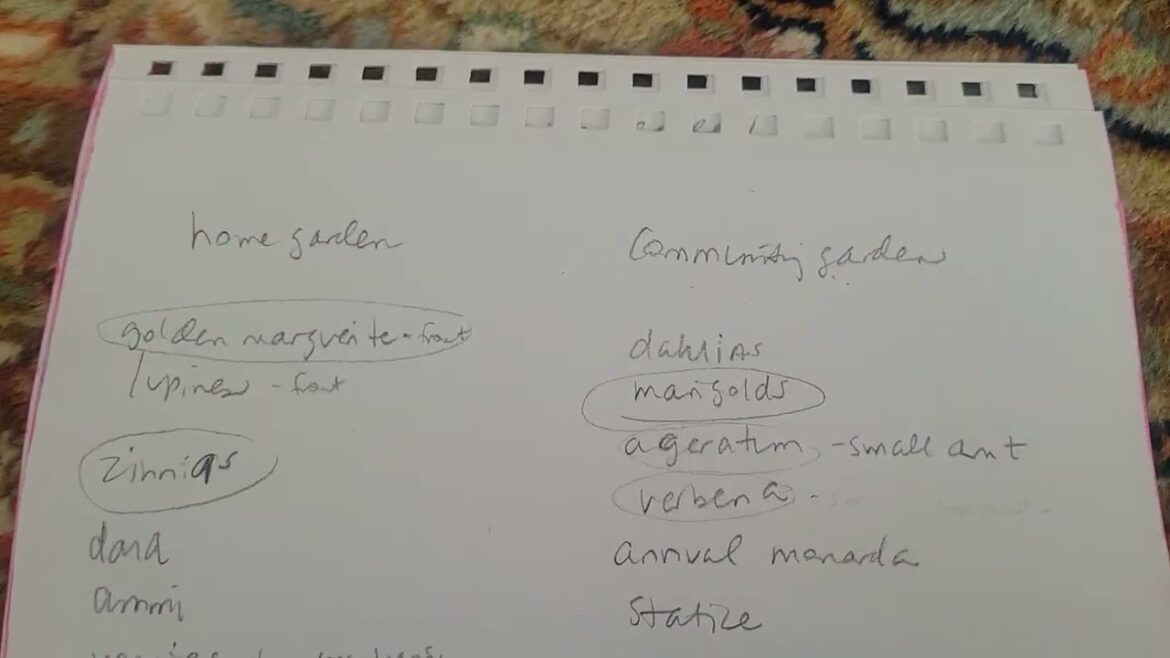 home garden
golden marguerite - front
lupines - front
zinnias
dara
ammi
Community garden
dahlias
marigolds
ageratum - small amt
verbena -
annual monarda
Statice